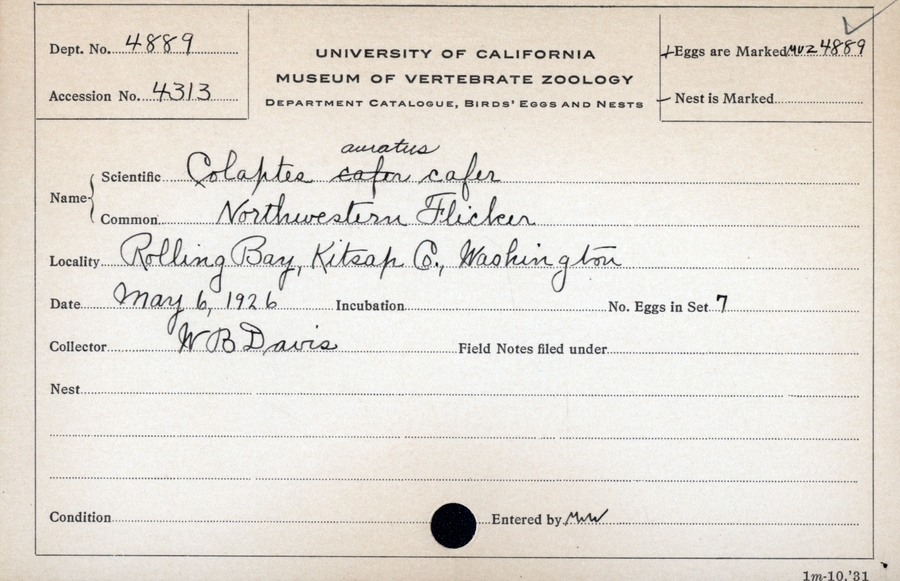 Dept. No. 4889
Accession No. 4313
UNIVERSITY OF CALIFORNIA
MUSEUM OF VERTEBRATE ZOOLOGY
DEPARTMENT CATALOGUE, BIRDS' EGGS AND NESTS
Eggs are Marked MVZ 4889
Nest is Marked
auratus
Name Scientific Colaptes cafer cafer
Common Northwestern Flicker
Locality Rolling Bay, Kitsap Co., Washington
Date May 6, 1926 Incubation No. Eggs in Set 7
Collector W B Davis Field Notes filed under
Nest
Condition Entered by
1m-10,'31